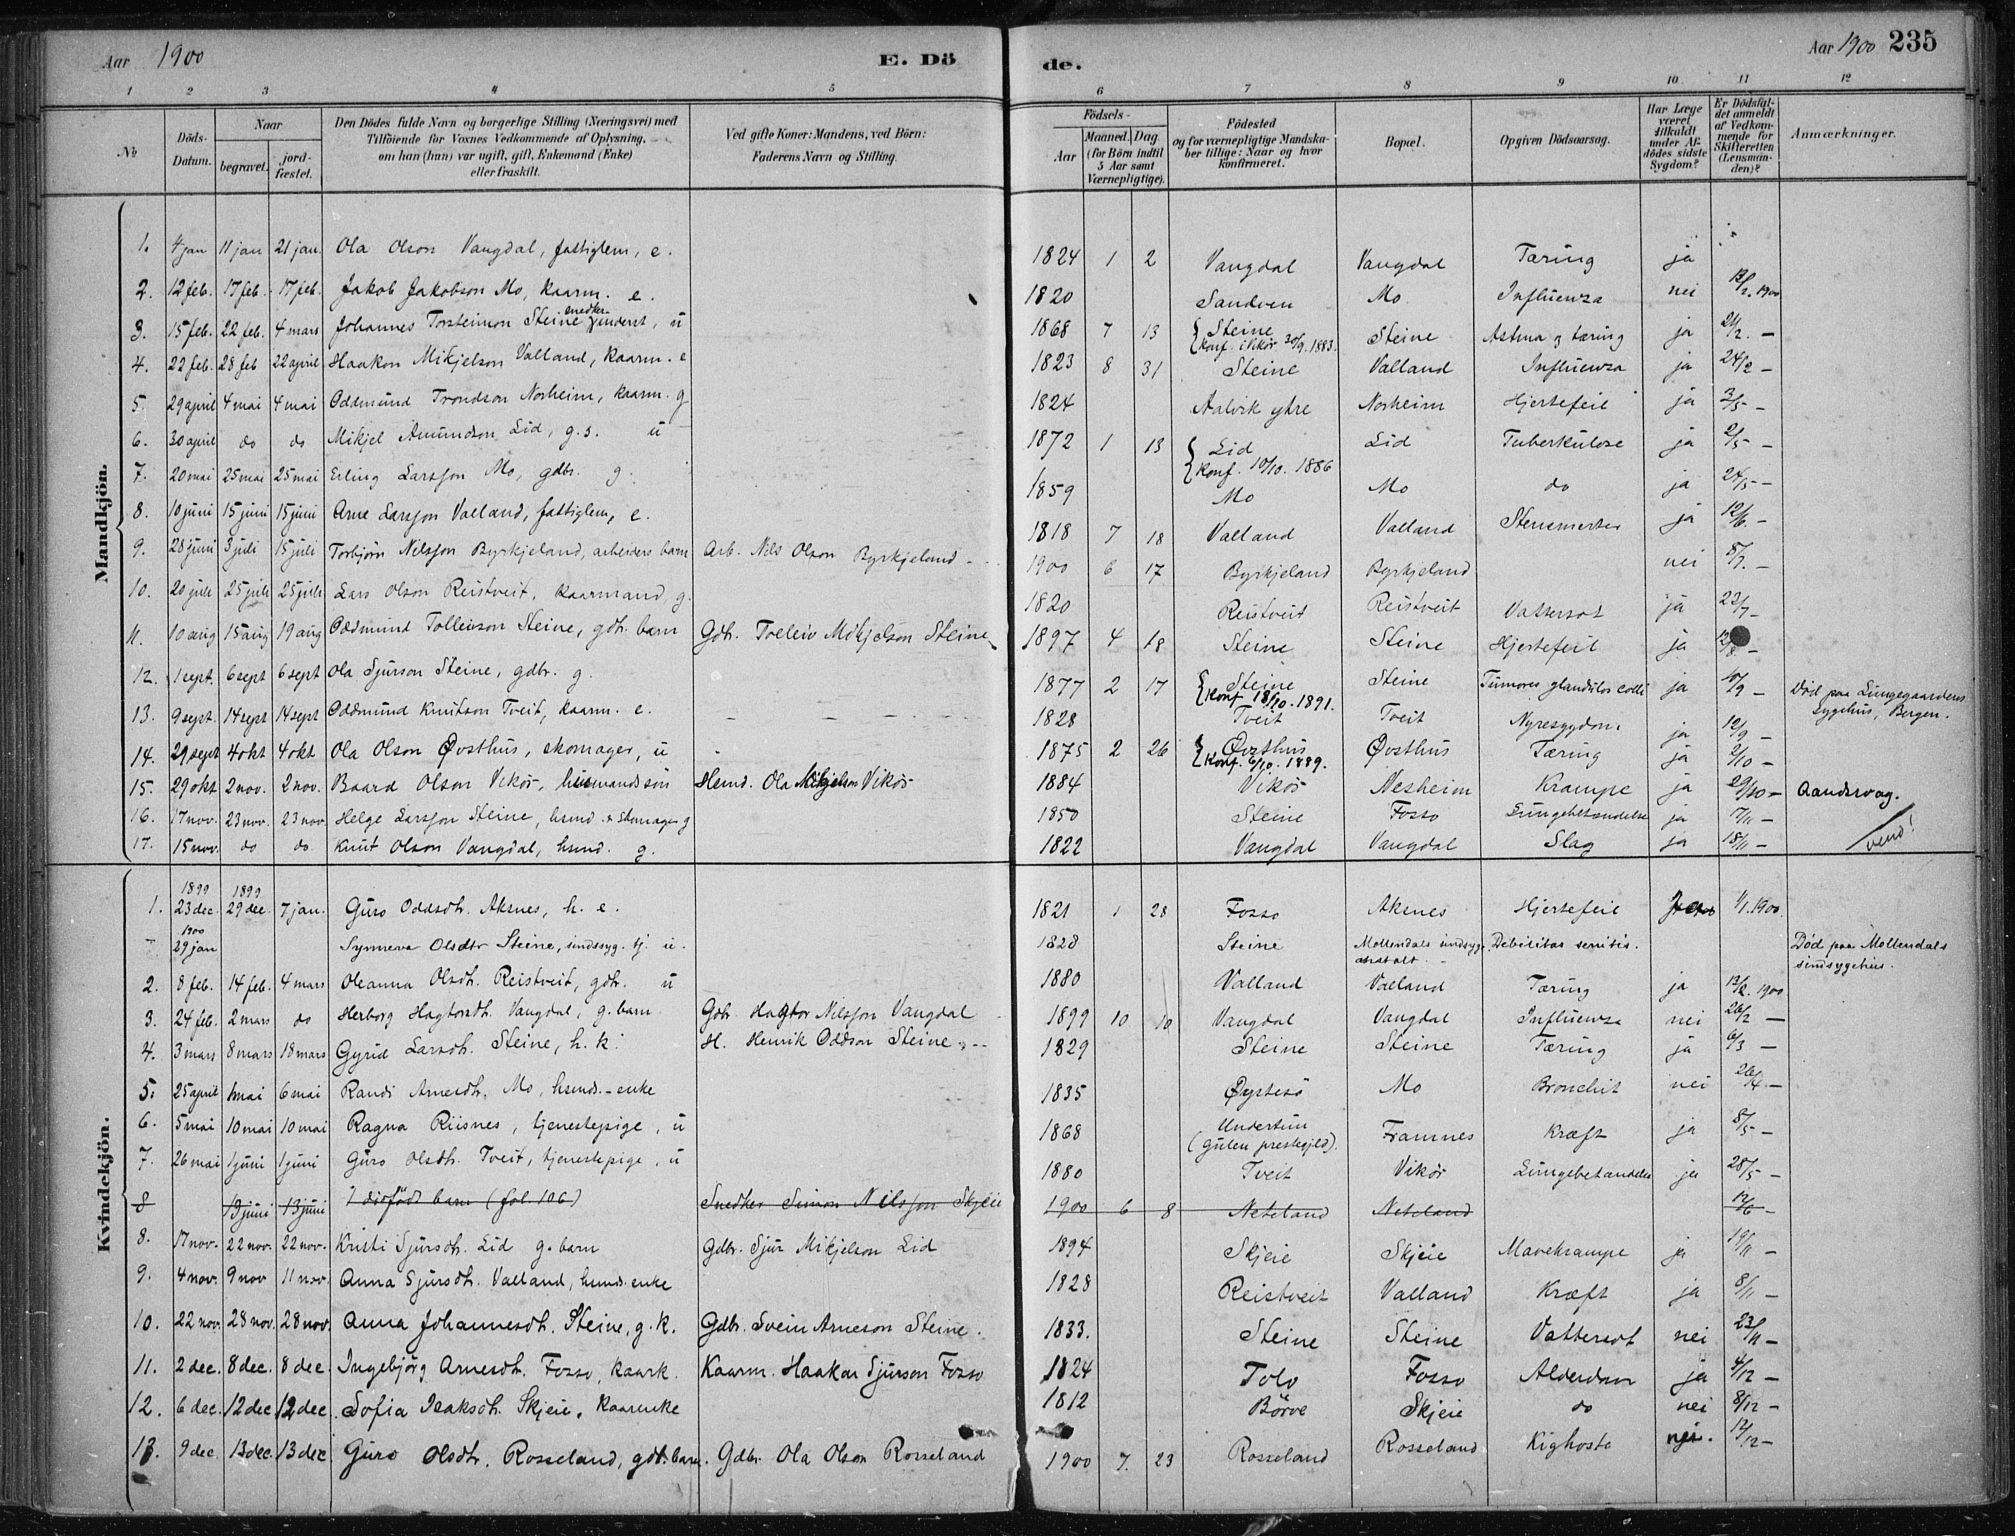 Aar 1900 E. Döde. Aar 1900 235
1 2 3 4 5 6 7 8 9 10 11 12
№ Döds-Datum. Naar begravet. jord-fæstet. Den Dödes fulde Navn og borgerlige Stilling (Næringsvei) med Tilföiende for Voxnes Vedkommende af Oplysning, om han (hun) var ugift, gift, Enkemand (Enke) eller fraskilt. Ved gifte Koner: Mandens, ved Börn: Faderens Navn og Stilling. Födsels- Aar Maaned. Dag. (for Börn indtil 5 Aar samt Værnepligtige). Födested og for værnepligtige Mandskaber tillige: Naar og hvor konfirmeret. Bopæl. Opgiven Dödsaarsag. Har Læge været tilkaldt under Afdödes sidste Sygdom? Er Dödsfaldet anmeldt af Vedkommende for Skifteretten (Lensmanden)? Anmærkninger.
Mandkjön.
1. 4 jan 11 jan 21 jan. Ola Olson Vangdal, fattiglem, e. 1824 1 2 Vangdal Vangdal Tæring ja
2. 12 feb. 17 feb. 17 feb. Jakob Jakobson Mo, kaarm. e. 1820 Sandven Mo Influenza nei 12/2. 1900
3. 15 feb. 22 feb. 4 mars Johannes Torsteinson Steine snedker, inderst, u 1868 7 13 Steine konf. i Vikör 30/9. 1883. Steine Astma og tæring ja 21/2. —
4. 22 feb. 28 feb 22 april Haakon Mikjelson Valland, kaarm. e 1823 8 31 Steine Valland Influenza ja 24/2 —
5. 29 april 4 mai 4 mai Oddmund Trondson Norheim, kaarm. g 1824 Aalvik ytre Norheim Hjertefeil ja 3/5 —
6. 30 april do do Mikjel Amundson Lid, g.s. u 1872 1 13 Lid konf. 10/10. 1886 Lid Tuberkulose ja 2/5 —
7. 20 mai 25 mai 25 mai Erling Larsson Mo, gdbr. g. 1859 Mo Mo do ja 24/5 —
8. 10 juni 15 juni 15 juni Arne Larsson Valland, fattiglem, e. 1818 7 18 Valland Valland Stensmerter ja 12/6. —
9. 28 juni 3 juli 15 juli Torbjörn Nilsson Byrkjeland, arbeiders barn Arb. Nils Olson Byrkjeland 1900 6 17 Byrkjeland Byrkjeland nei 5/7. —
10. 20 juli 25 juli 25 juli Lars Olson Reistveit, kaarmand, g. 1820 Reistveit Reistveit Vattersot ja 22/7 —
11. 10 aug 15 aug 19 aug Oddmund Tolleivson Steine, gdb. barn Gdb. Tolleiv Mikjelson Steine 1897 4 18 Steine Steine Hjertefeil ja 12/8 —
12. 1 sept. 6 sept 6 sept Ola Sjurson Steine, gdbr. g. 1877 2 17 Steine konf 18/10. 1891. Steine Tumores glandulos colli ja 10/9 — Död paa Lungegaardens sygehus, Bergen.
13. 9 sept. 14 sept 14 sept Oddmund Knutson Tveit, kaarm. e. 1828 Tveit Tveit Nyresygdom ja 12/9 —
14. 29 sept 4 okt 4 okt Ola Olson Øvsthus, skomager, u 1875 2 26 Øvsthus konf. 6/10. 1889. Øvsthus Tæring ja 2/10 —
15. 29 okt 2 nov. 2 nov. Baard Olson Vikör, husmandssön Husmd. Ola Mikjelson Vikör 1884 Vikör Nesheim Krampe ja 29/10 — Aandsvag.
16. 17 nov. 23 nov. 23 nov Helge Larsson Steine, husmd. & skomager g 1850 Steine Fosso Lungebetændelse ja 17/11 —
17. 15 nov. do do Knut Olson Vangdal, husmd. g. 1822 Vangdal Vangdal Slag ja 18/11 — vend!
Kvindekjön.
1. 1899 23 dec. 1899 29 dec. 7 jan. Guro Oddsdtr. Aksnes, h. e. 1821 1 28 Fosso Aksnes Hjertefeil 1/1. 1900
1900 29 jan Synneva Olsdtr Steine, sindssyg. tj. u. 1828 Steine Möllendals sindsyge asyl Debilitas senilis. Död paa Möllendals sindsygehus.
2. 8 feb. 14 feb. 4 mars Oleanna Olsdtr. Reistveit, gdtr. u 1880 Valland Valland Tæring ja 12/2. 1900
3. 24 feb. 2 mars do Herborg Hagtorsdtr. Vangdal, g. barn Gdbr Hagtor Nilsson Vangdal 1899 10 10 Vangdal Vangdal Influenza nei 26/2 —
4. 3 mars 8 mars 18 mars Gyrid Larsdtr. Steine, h. k. H. Henrik Oddson Steine 1829 Steine Steine Tæring ja 6/3 —
5. 25 april 1 mai 6 mai Randi Arnesdtr. Mo, husmds.-enke 1835 Øystesö Mo Bronchit nei 26/4 —
6. 5 mai 10 mai 10 mai Ragna Riisnes, tjenestepige, u 1868 Undertun (Gulen prestegjeld). Framnes Kræft ja 8/5 —
7. 26 mai 1 juni 1 juni Guro Olsdtr. Tveit, tjenestepige, u 1880 Tveit Vikör Lungebetændelse ja 28/5 —
8 13 juni 13 juni 1 dödfödt barn (fol. 106) Snedker Simon Nilsson Skjeie 1900 6 8 Neteland Neteland 12/6 —
8. 17 nov. 22 nov. 22 nov. Kristi Sjursdtr. Lid g. barn Gdbr. Sjur Mikjelson Lid 1894 Skjeie Skjeie Mavekrampe ja 19/11 —
9. 4 nov. 9 nov 11 nov. Anna Sjursdtr. Valland, husmd. enke 1828 Reistveit Valland Kræft ja 8/11 —
10. 22 nov. 28 nov. 28 nov. Anna Johannesdtr. Steine, g. k. Gdbr. Svein Arneson Steine. 1833. Steine Steine Vattersot nei 23/11 —
11. 2 dec. 8 dec. 8 dec. Ingebjörg Arnesdtr. Fosso, kaark. Kaarm. Haakon Sjurson Fosso 1824 Tolo Fosso Alderdom ja 4/12 —
12. 6 dec. 12 dec 12 dec. Sofia Isaksdtr. Skjeie, kaarenke 1812 Börve Skjeie do nei 8/12 —
13. 9 dec. 13 dec. 13 dec. Guro Olsdtr. Rosseland, gdb. barn. Gdbr. Ola Olson Rosseland 1900 7. 23 Rosseland Rosseland Kighoste nei. 12/12 —